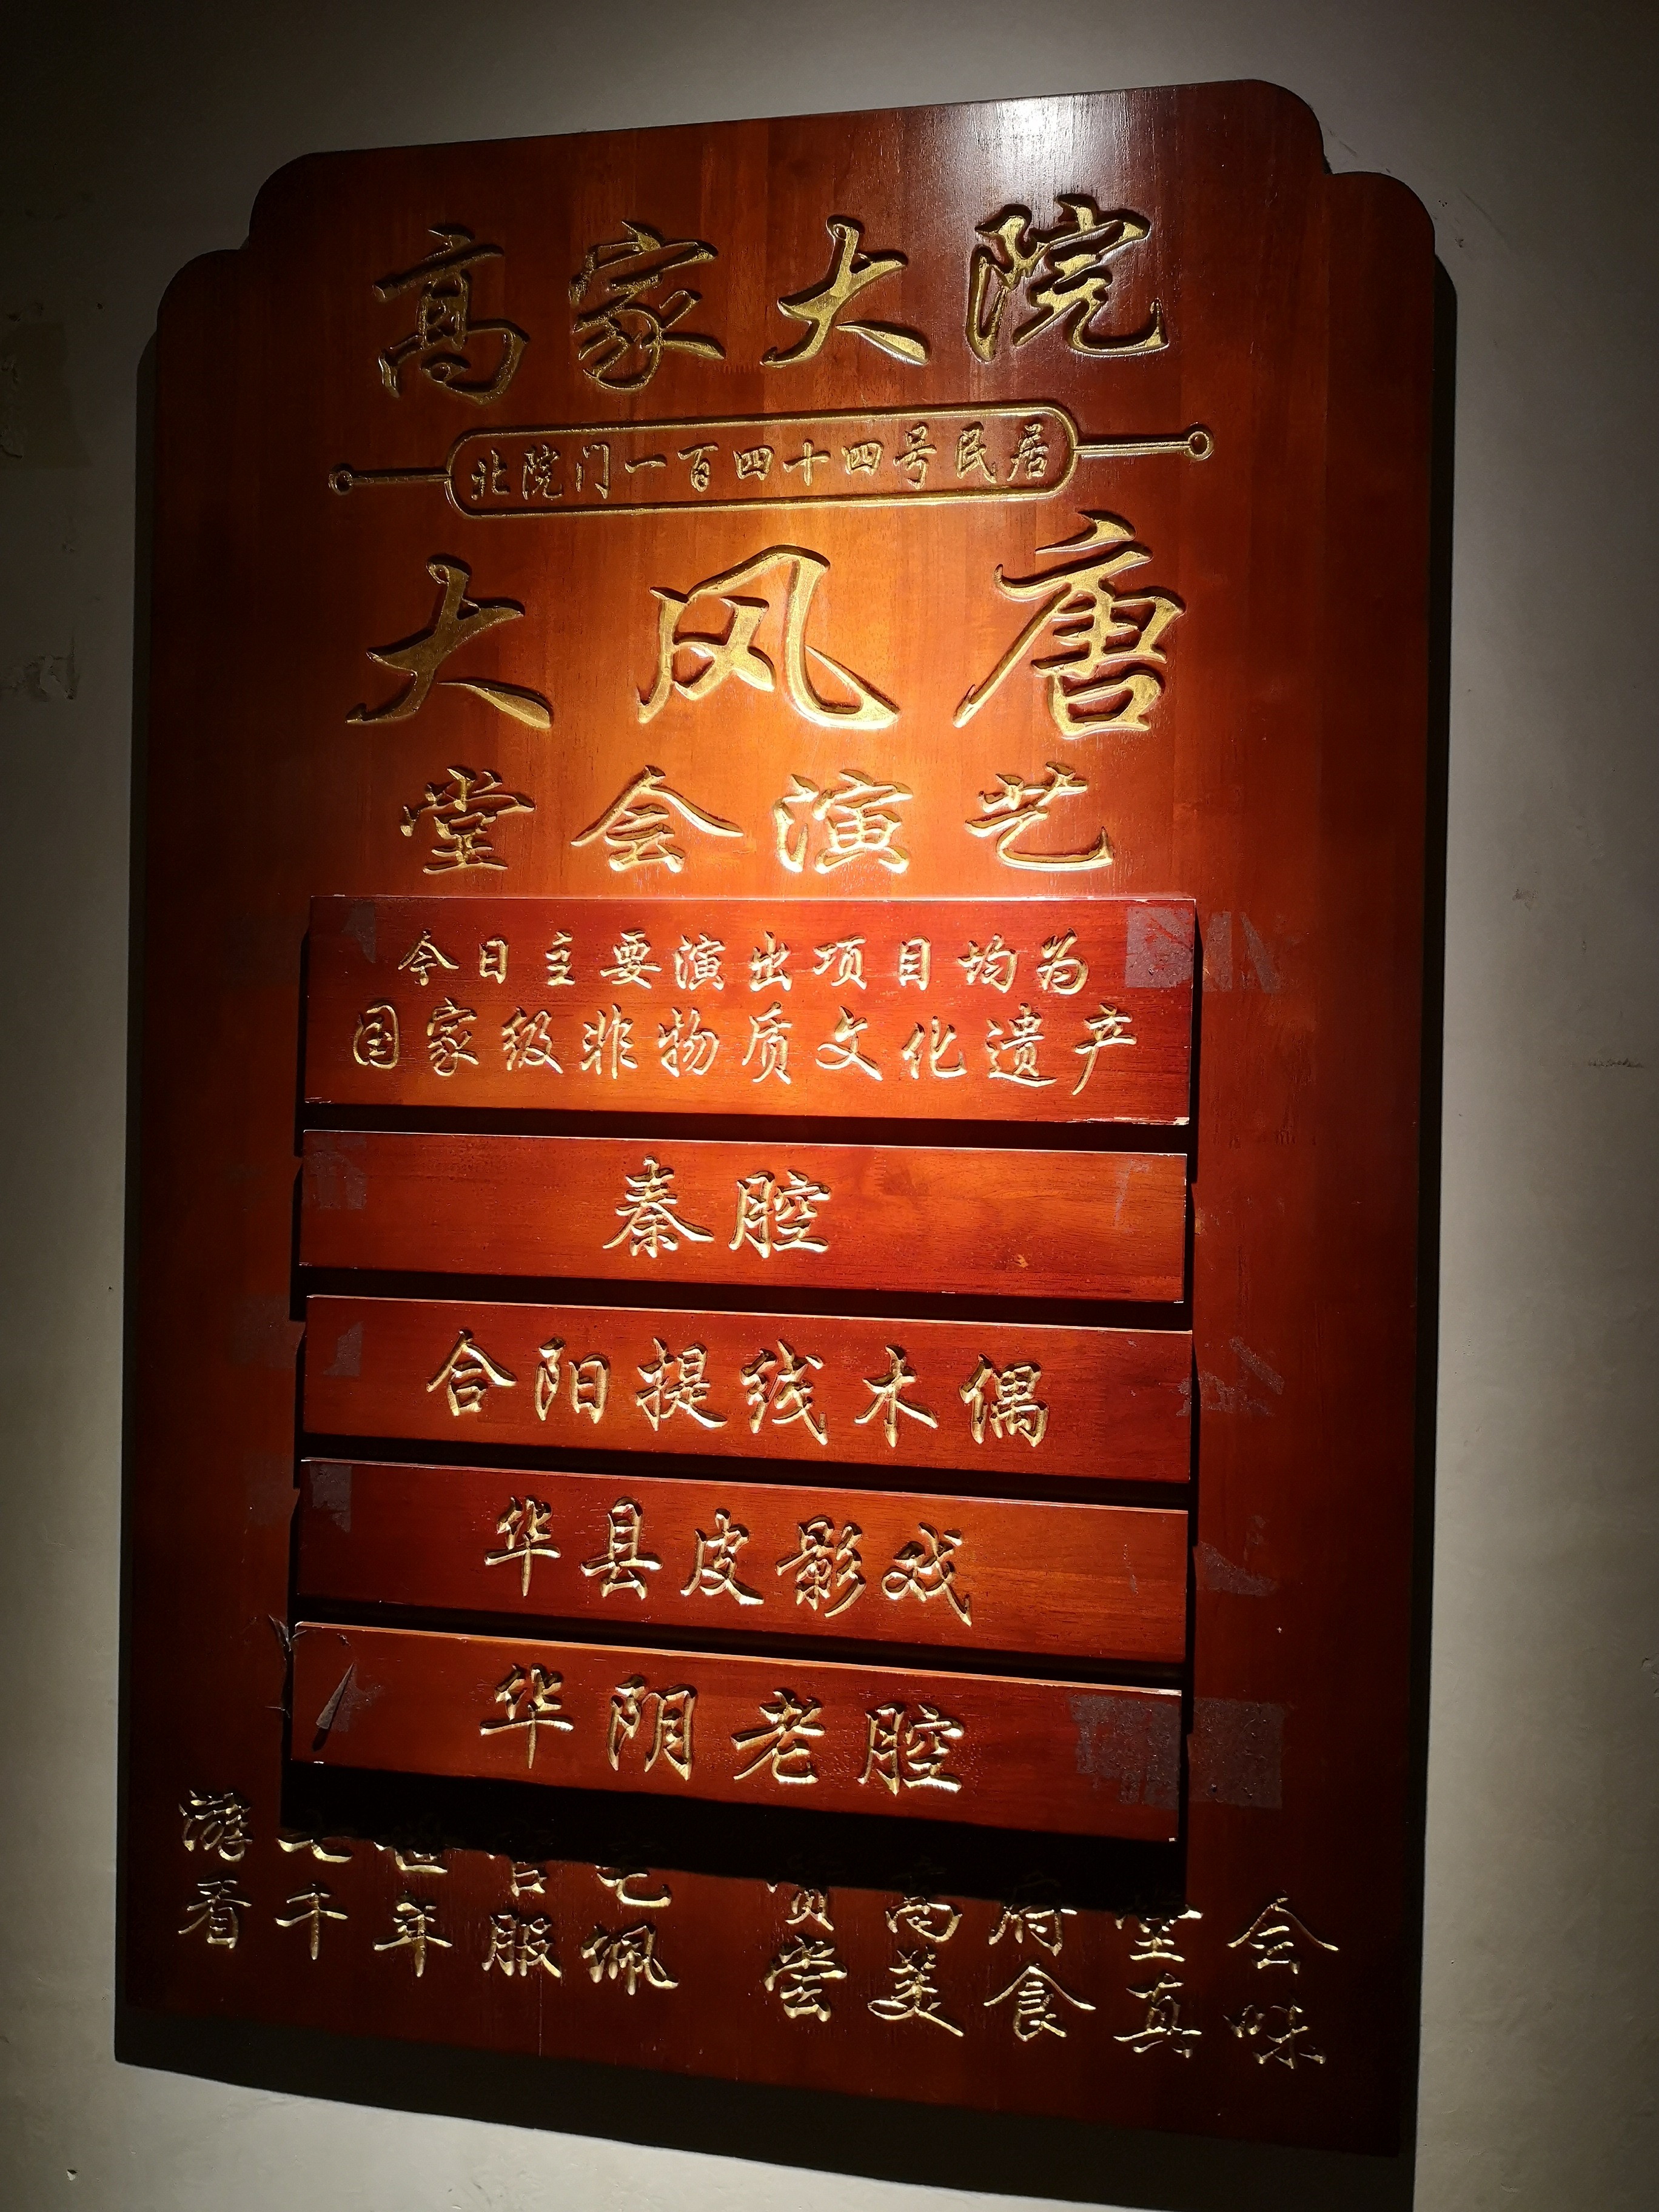 高家大院
北院门一百四十四号民居
大风唐
堂会演艺
今日主要演出项目均为
国家级非物质文化遗产
秦腔
合阳提线木偶
华县皮影戏
华阴老腔
游七世官宅 赏高府堂会
看千年服佩 尝美食真味